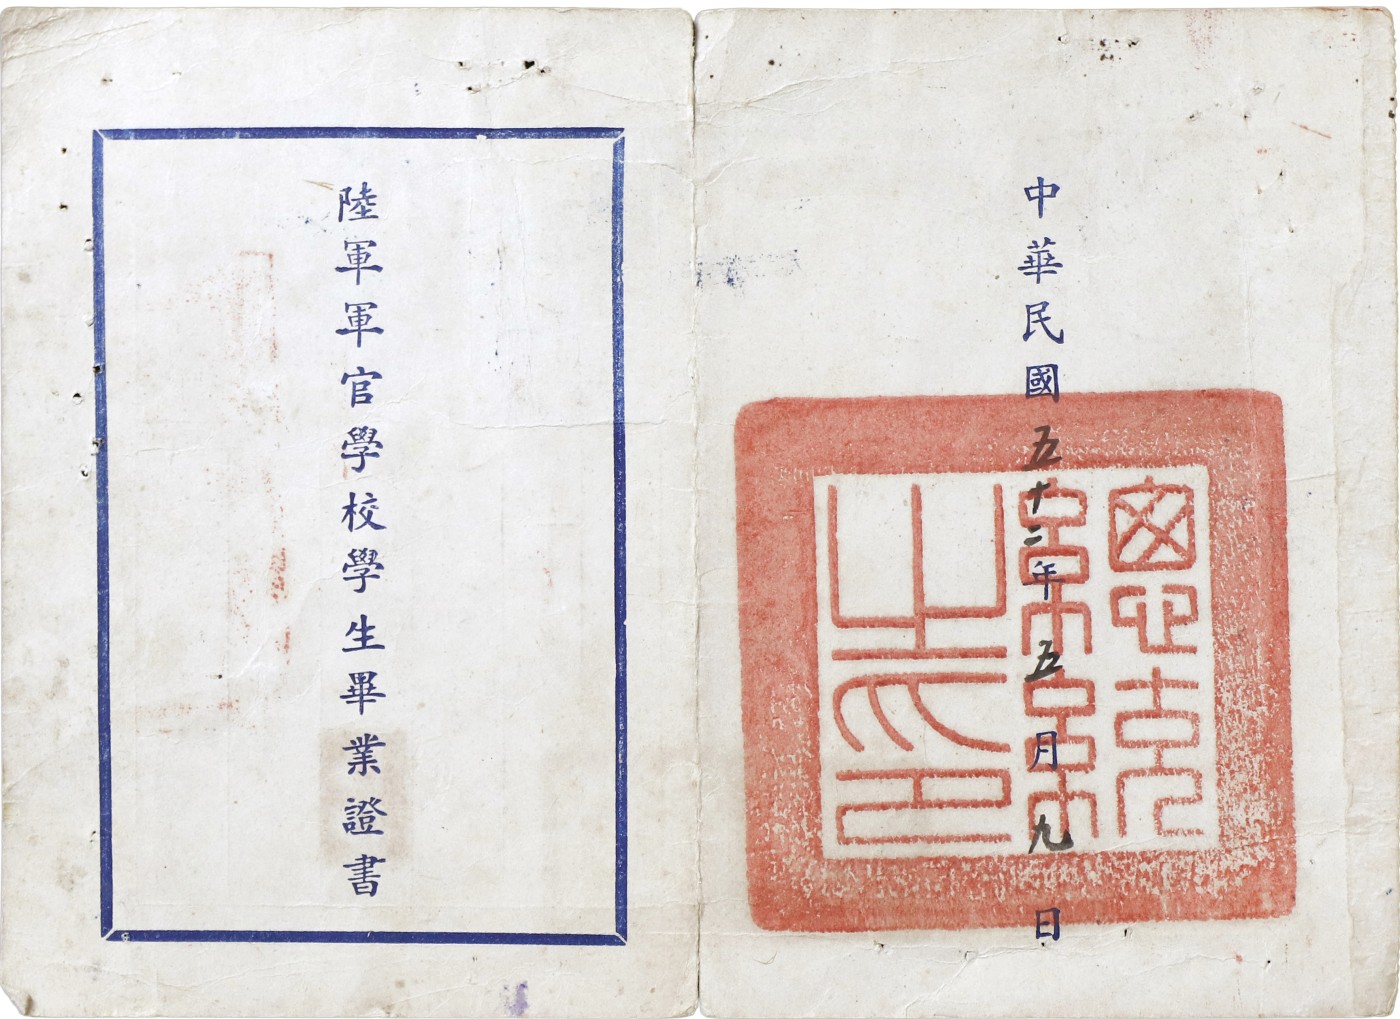 陸軍軍官學校學生畢業證書
中華民國五十二年五月九日
總統之印